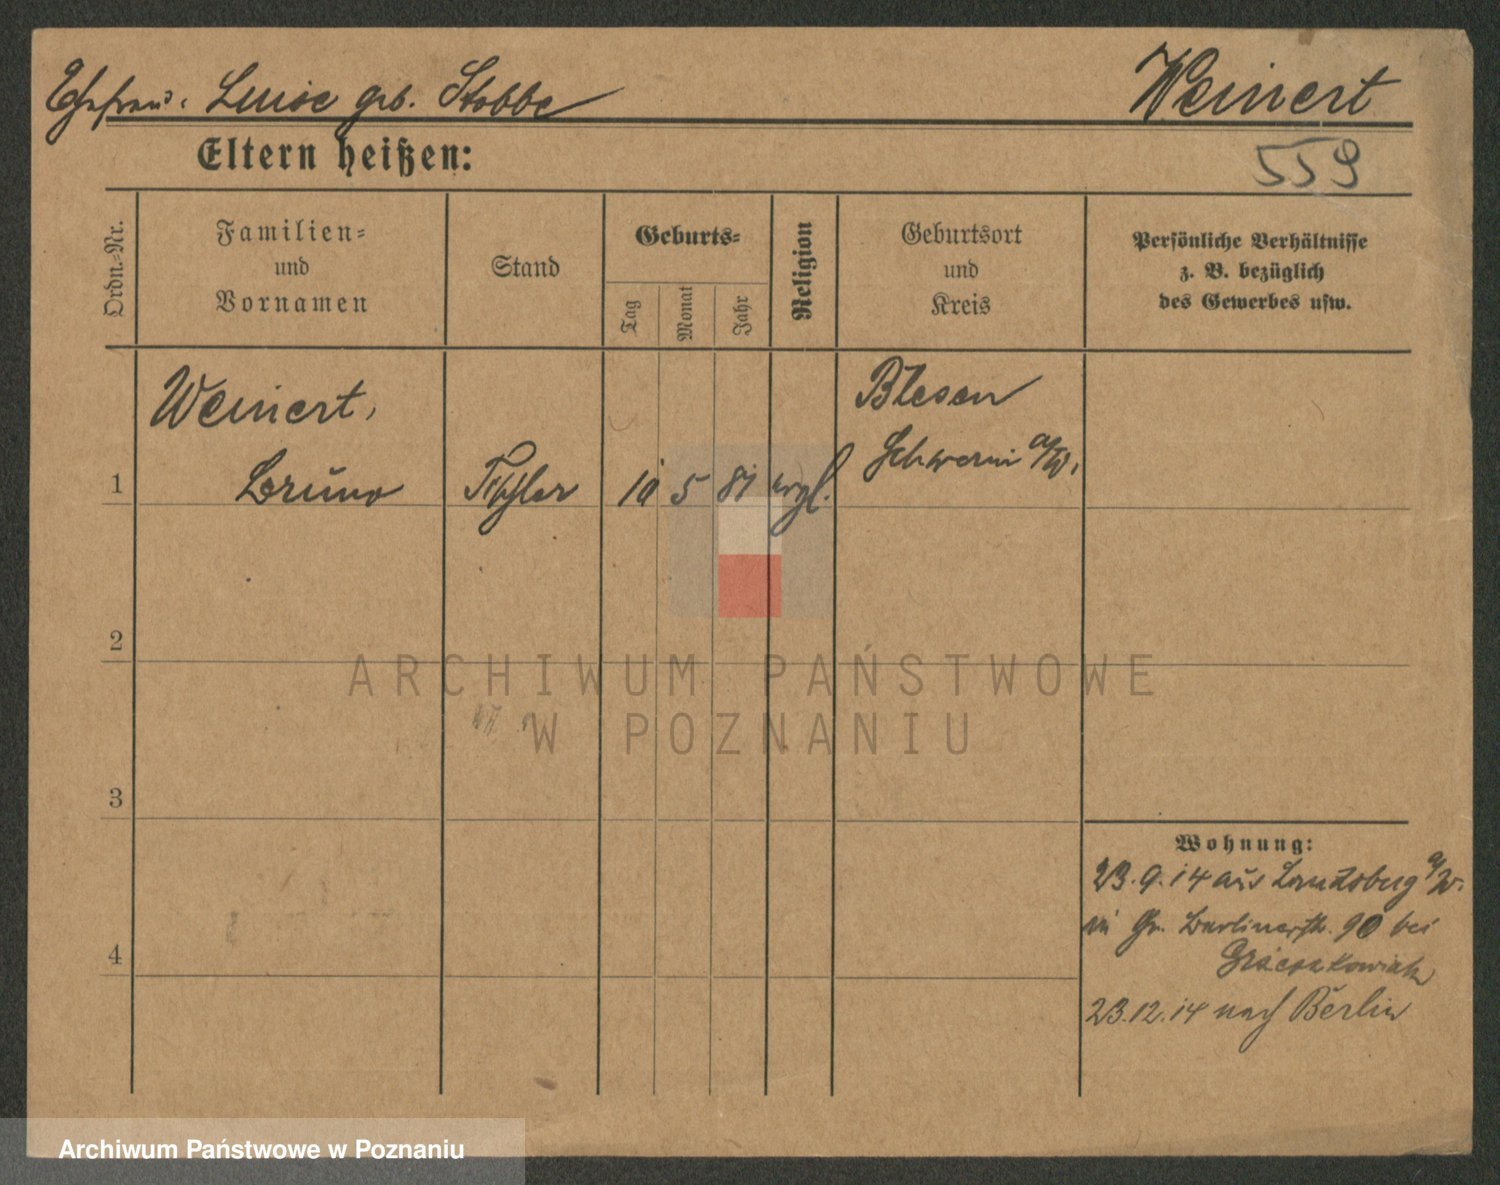 Ehefrau: Luise geb. Stobbe
Weinert
559
Eltern heißen:
Ordn.-Nr.
Familien- und Vornamen
Stand
Geburts-
Tag
Monat
Jahr
Religion
Geburtsort und Kreis
Persönliche Verhältnisse
z. B. bezüglich
des Gewerbes usw.
Weinert,
Blesen
Schwerin a/W.
1 Bruno 5 81
2
3
4
Wohnung:
23.9.14 aus Landsberg a/W.
in Gr. Berlinerstr. 90 bei
23.12.14 nach Berlin
ARCHIWUM PAŃSTWOWE
W POZNANIU
Archiwum Państwowe w Poznaniu